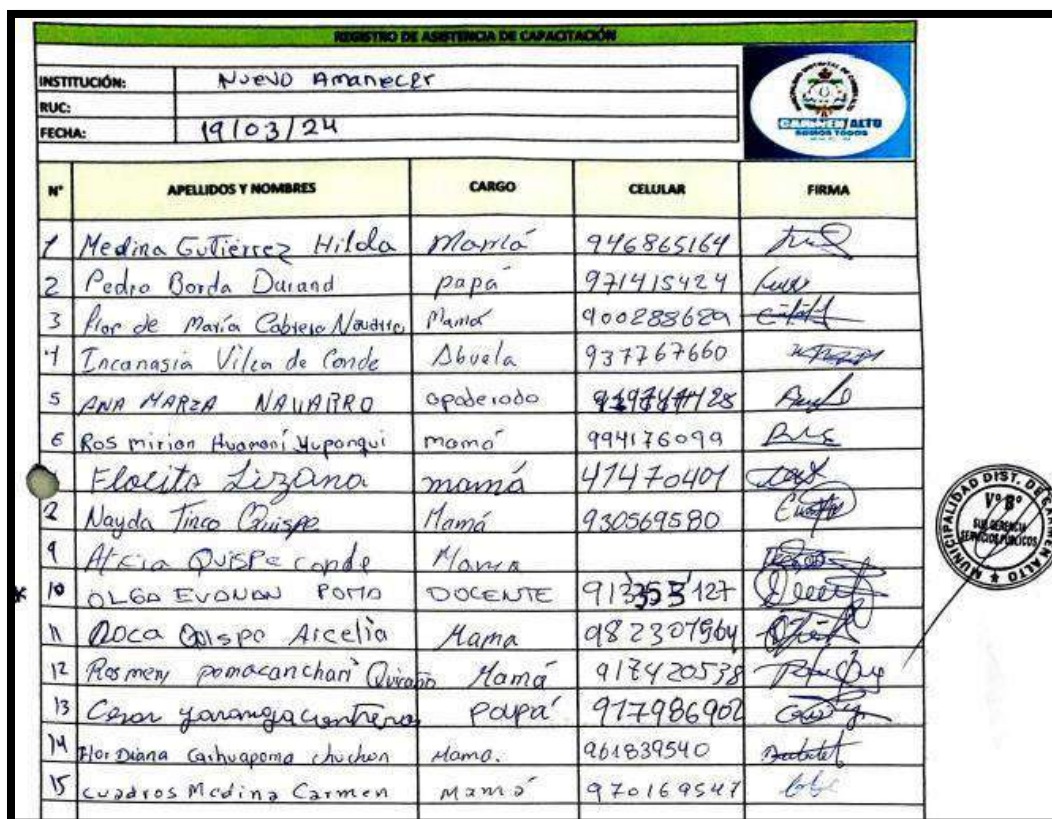 REGISTRO DE ASISTENCIA DE CAPACITACIÓN
INSTITUCIÓN: Nuevo Amanecer
RUC:
FECHA: 19/03/24
CARMEN ALTO
SOMOS TODOS
N° APELLIDOS Y NOMBRES CARGO CELULAR FIRMA
1 Medina Gutiérrez Hilda Mamá 946865164
2 Pedro Borda Durand papá 971415424
3 Flor de María Cabrera Mamá 900288629
4 Incanasia Vilca de Conde Abuela 937767660
5 ANA MARIA NAVARRO apoderado
6 Ros mirian Huamaní Yupanqui mamá 994176099
Flocita Lizana mamá 47470401
2 Nayda Tinco Quispe Mamá 930569580
9 Quispe conde Mama
10 OLGA EVANAN POMA DOCENTE
11 Roca Quispe Arcelia Mama 982307964
12 Rosmery pomacanchari Mamá 917420538
13 Cesar yarangacontreras papá 977986902
14 Flor Diana Cashuapoma chuchon Mama. 961839540
15 Cuadros Medina Carmen Mamá 970169547
MUNICIPALIDAD DIST. DE CARMEN ALTO
V° B°
SUB GERENCIA
SERVICIOS PUBLICOS